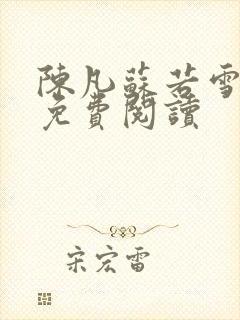 陳凡蘇若雪
免費閱讀
宋宏雷